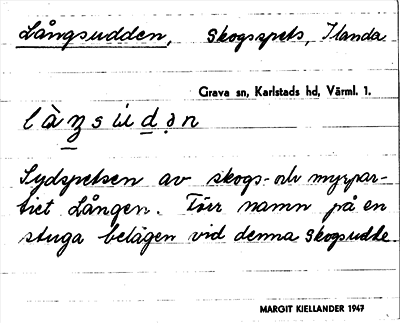 Långsudden, Skogsspets, Ilanda
Grava sn, Karlstads hd, Värml. 1.
Sydspetsen av skogs- och myrpar-
tiet Lången. Förr namn på en
stuga belägen vid denna skogsudde.
MARGIT KIELLANDER 1947